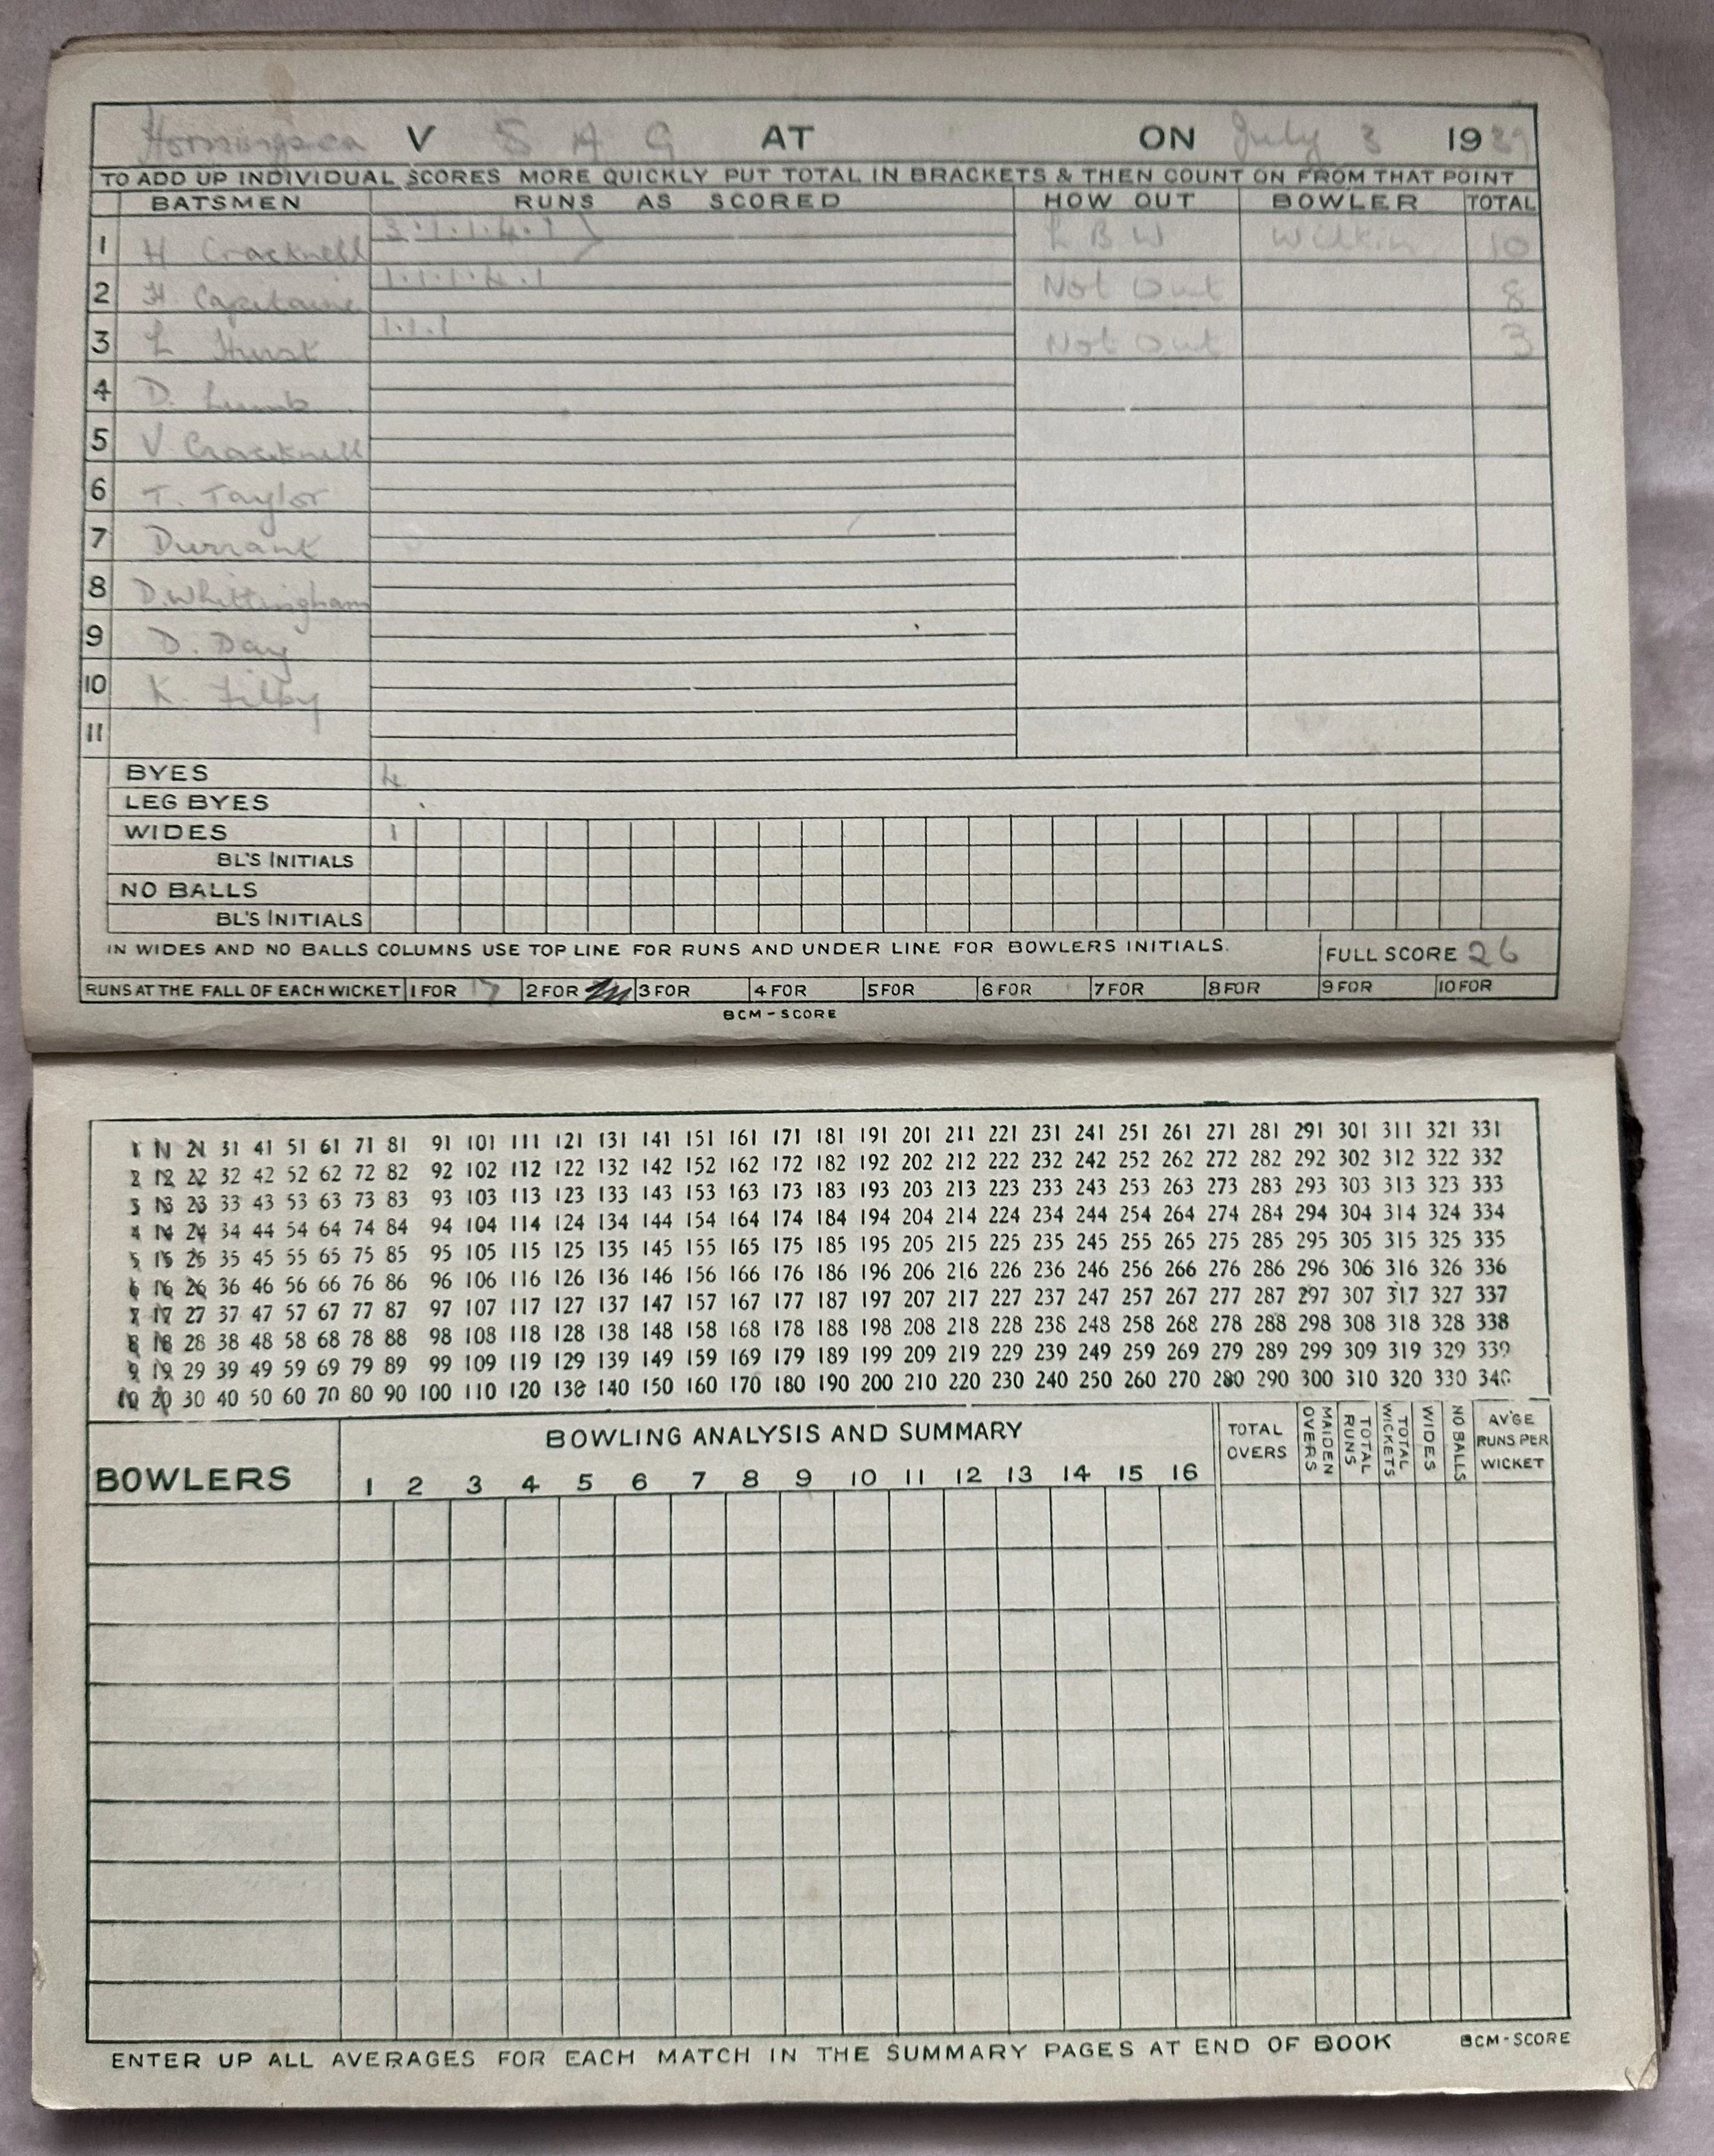 Horningsea V S A G AT ON July 3 1939
TO ADD UP INDIVIDUAL SCORES MORE QUICKLY PUT TOTAL IN BRACKETS & THEN COUNT ON FROM THAT POINT
BATSMEN RUNS AS SCORED HOW OUT BOWLER TOTAL
1 H Cracknell 3.1.1.4.1 L B W Wilkin 10
2 H. Capitaine 1.1.1.4.1 Not Out 8
3 L Hurst 1.1.1 Not Out 3
4 D. Lumb
5 V Cracknell
6 T. Taylor
7 Durrant
8 D. Whittingham
9 D. Day
10 K. Filby
11
BYES 4
LEG BYES
WIDES 1
BL'S INITIALS
NO BALLS
BL'S INITIALS
IN WIDES AND NO BALLS COLUMNS USE TOP LINE FOR RUNS AND UNDER LINE FOR BOWLERS INITIALS. FULL SCORE 26
RUNS AT THE FALL OF EACH WICKET 1 FOR 17 2 FOR 3 FOR 4 FOR 5 FOR 6 FOR 7 FOR 8 FOR 9 FOR 10 FOR
BCM-SCORE
1 11 21 31 41 51 61 71 81 91 101 111 121 131 141 151 161 171 181 191 201 211 221 231 241 251 261 271 281 291 301 311 321 331
2 12 22 32 42 52 62 72 82 92 102 112 122 132 142 152 162 172 182 192 202 212 222 232 242 252 262 272 282 292 302 312 322 332
3 13 23 33 43 53 63 73 83 93 103 113 123 133 143 153 163 173 183 193 203 213 223 233 243 253 263 273 283 293 303 313 323 333
4 14 24 34 44 54 64 74 84 94 104 114 124 134 144 154 164 174 184 194 204 214 224 234 244 254 264 274 284 294 304 314 324 334
5 15 25 35 45 55 65 75 85 95 105 115 125 135 145 155 165 175 185 195 205 215 225 235 245 255 265 275 285 295 305 315 325 335
6 16 26 36 46 56 66 76 86 96 106 116 126 136 146 156 166 176 186 196 206 216 226 236 246 256 266 276 286 296 306 316 326 336
7 17 27 37 47 57 67 77 87 97 107 117 127 137 147 157 167 177 187 197 207 217 227 237 247 257 267 277 287 297 307 317 327 337
8 18 28 38 48 58 68 78 88 98 108 118 128 138 148 158 168 178 188 198 208 218 228 238 248 258 268 278 288 298 308 318 328 338
9 19 29 39 49 59 69 79 89 99 109 119 129 139 149 159 169 179 189 199 209 219 229 239 249 259 269 279 289 299 309 319 329 339
10 20 30 40 50 60 70 80 90 100 110 120 130 140 150 160 170 180 190 200 210 220 230 240 250 260 270 280 290 300 310 320 330 340
BOWLERS BOWLING ANALYSIS AND SUMMARY TOTAL OVERS MAIDEN OVERS TOTAL RUNS TOTAL WICKETS WIDES NO BALLS AV'GE RUNS PER WICKET
1 2 3 4 5 6 7 8 9 10 11 12 13 14 15 16
ENTER UP ALL AVERAGES FOR EACH MATCH IN THE SUMMARY PAGES AT END OF BOOK BCM-SCORE